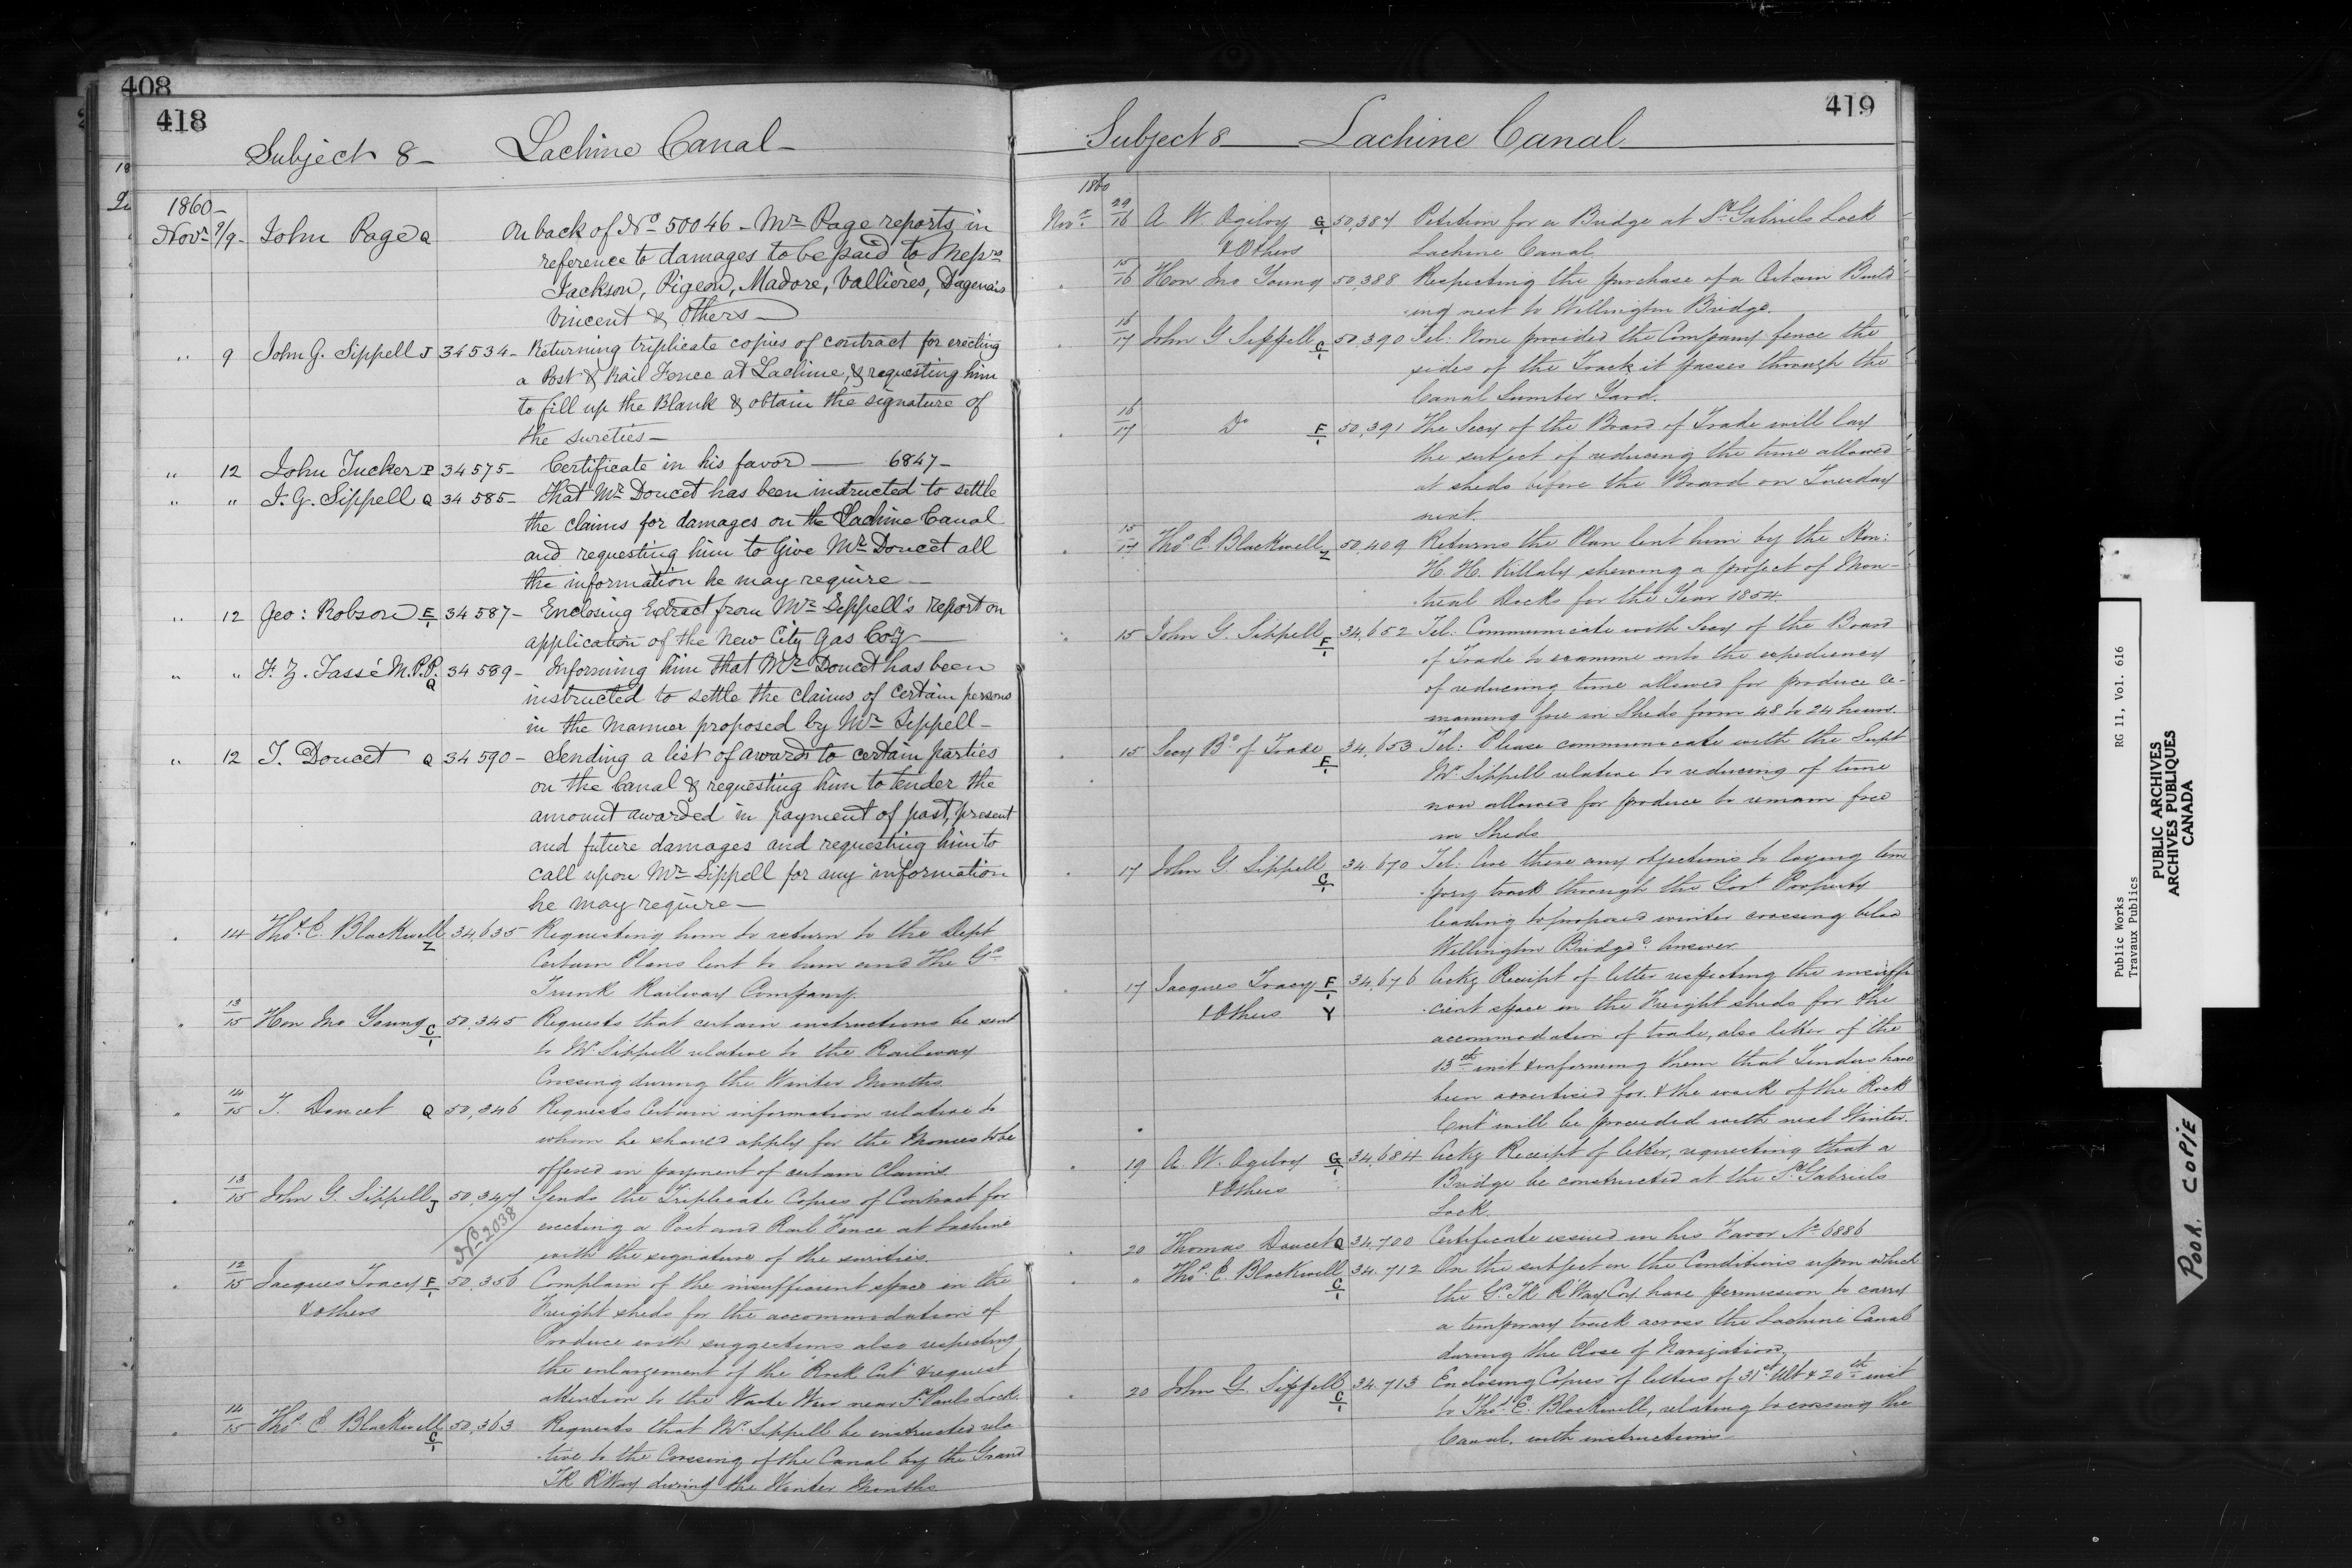 408
418
Subject 8 – Lachine Canal –
1860 –
Novr 9/9 – John Page Q On back of No 50046 – Mr Page reports in
reference to damages to be paid to Messrs
Jackson, Pigeon, Madore, Vallieres, Dagenais
Vincent & Others –
" 9 John G. Sippell J 34534 – Returning triplicate copies of contract for erecting
a Post & Rail Fence at Lachine, & requesting him
to fill up the Blank & obtain the signature of
the sureties –
" 12 John Tucker P 34575 – Certificate in his favor — 6847 –
" " J. G. Sippell Q 34585 – That Mr Doucet has been instructed to settle
the claims for damages on the Lachine Canal
and requesting him to Give Mr Doucet all
the information he may require –
" 12 Geo: Robson E/1 34587 – Enclosing Extract from Mr Sippell's report on
application of the New City Gas Coy –
" " F. Z. Tassé M.P.P. Q 34589 – Informing him that Mr Doucet has been
instructed to settle the claims of certain persons
in the manner proposed by Mr Sippell –
" 12 T. Doucet Q 34590 – Sending a list of awards to certain parties
on the Canal & requesting him to tender the
amount awarded in payment of past, present
and future damages and requesting him to
call upon Mr Sippell for any information
he may require –
" 14 Thos E. Blackwell Z 34,635 Requesting him to return to the Dept
Certain Plans lent to him and The Gd
Trunk Railway Company.
" 13/15 Hon Jno Young C/1 50,345 Requests that certain instructions be sent
to Mr Sippell relative to the Railway
Crossing during the Winter Months
" 14/15 T. Doucet Q 50,346 Requests Certain information relative to
whom he should apply for the Monies to be
offered in payment of certain Claims
" 13/15 John G. Sippell J 50,347 Sends the Triplicate Copies of Contract for
No 2038
erecting a Post and Rail Fence at Lachine
with the signature of the sureties.
" 12/15 Jacques Tracy F/1 50,356 Complain of the insufficient space in the
& others Freight sheds for the accommodation of
Produce with suggestions also respecting
the enlargement of the "Rock Cut" & request
attention to the Waste Weir near St Pauls Lock.
" 14/15 Thos E Blackwell C/1 50,363 Requests that Mr Sippell be instructed rela
tive to the Crossing of the Canal by the Grand
TK R'Way during the Winter Months
419
Subject 8 Lachine Canal
1860
Novr 16 A W Ogilvy G/1 50,387 Petition for a Bridge at St Gabriels Lock
& Others Lachine Canal.
" 15/16 Hon Jno Young 50,388 Respecting the purchase of a Certain Build
ing next to Wellington Bridge.
" 16/17 John G Sippell C/1 50,390 Tel: None provided the Company fence the
sides of the Track it passes through the
Canal Lumber Yard.
" 16/17 Do F/1 50,391 The Secy of the Board of Trade will lay
the subject of reducing the time allowed
at sheds before the Board on Tuesday
next.
" 15/17 Thos E Blackwell Z 50,409 Returns the Plan lent him by the Hon:
H. H. Killaly shewing a project of Mon-
treal Docks for the Year 1854.
" 15 John G. Sippell F/1 34,652 Tel: Communicate with Secy of the Board
of Trade to examine into the expediency
of reducing time allowed for produce re-
maining free in Sheds from 48 to 24 hours.
" 15 Secy Bd of Trade F/1 34,653 Tel: Please communicate with the Supt
Mr Sippell relative to reducing of time
now allowed for produce to remain free
in Sheds
" 17 John G. Sippell C/1 34,670 Tel: Are there any objections to laying tem
pory track through the Govt Property
leading to proposed winter crossing below
Wellington Bridge? Answer
" 17 Jacques Tracy F/1 34,676 Ackg Receipt of letter respecting the insuffi
& Others Y cient space in the Freight sheds for the
accommodation of trade, also letter of the
13th inst & informing them that Tenders have
been advertised for & the work of the Rock
Cut will be proceeded with next Winter.
" 19 A. W. Ogilvy G/1 34,684 Ackg Receipt of letter, requesting that a
& Others Bridge be constructed at the St Gabriels
Lock.
" 20 Thomas Doucet Q 34,700 Certificate issued in his Favor No 6886
" " Thos E. Blackwell C/1 34,712 On the subject on the Conditions upon which
the G. TK R'Way Coy have permission to carry
a temporary track across the Lachine Canal
during the Close of Navigation.
" 20 John G. Sippell C/1 34,713 Enclosing Copies of letters of 31st Ult & 20th inst
to Thos E. Blackwell, relating to crossing the
Canal, with instructions
Public Works RG 11, Vol. 616
Travaux Publics
PUBLIC ARCHIVES
ARCHIVES PUBLIQUES
CANADA
POOR COPIE